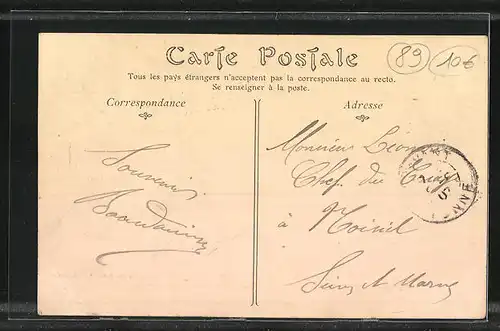 Carte Postale
89
10€
Tous les pays étrangers n'acceptent pas la correspondance au recto.
Se renseigner à la poste.
Correspondance
Adresse
Souvenir
Monsieur Léon
Chef du
à Noisiel
Seine et Marne